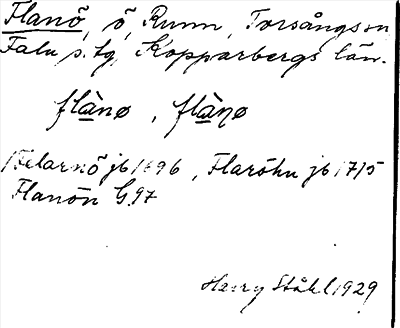 Flanö, ö, Runn, Torsångs sn,
Falu s. tg, Kopparbergs län.
flànø, flàṇø
Felarnö jb 1696, Flaröhn jb 1715
Flanön G97
Harry Ståhl 1929